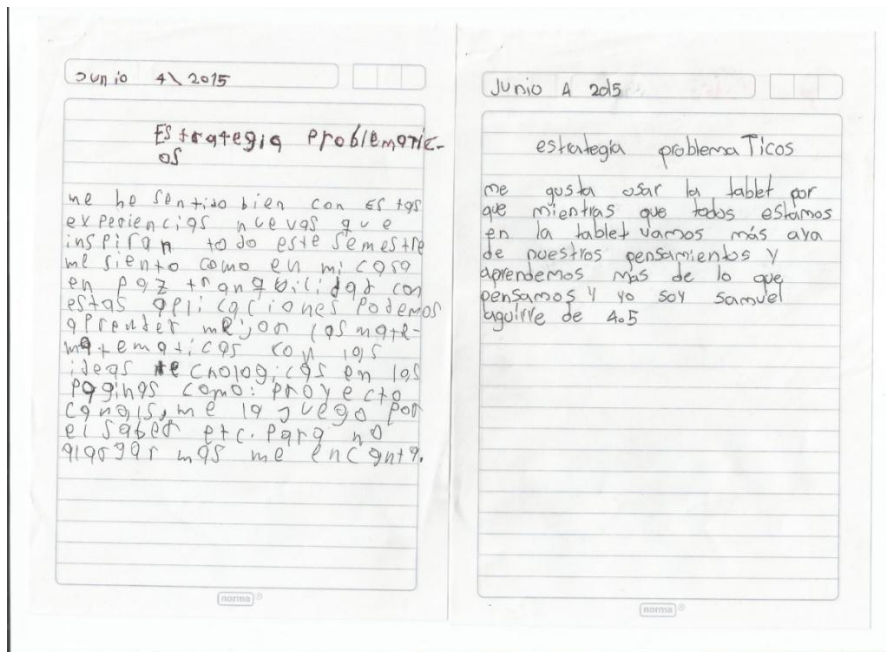 Junio 4\ 2015
Estrategia Problematic-
os
me he sentido bien con Estas
experiencias nuevas que
inspiran todo este semestre
me siento como en mi casa
en paz tranqbilidad con
estas aplicaciones Podemos
aprender mejor las mate-
matematicas con las
ideas tecnologicas en las
Paginas como: proyecto
canais, me la juego por
el saber etc. Para no
alargar mas me encanta.
norma
Junio 4 2015
estrategia problemaTicos
me gusta usar la tablet por
que mientras que todos estamos
en la tablet vamos más aya
de nuestros pensamientos y
aprendemos más de lo que
pensamos y yo soy samuel
aguirre de 4.5
norma